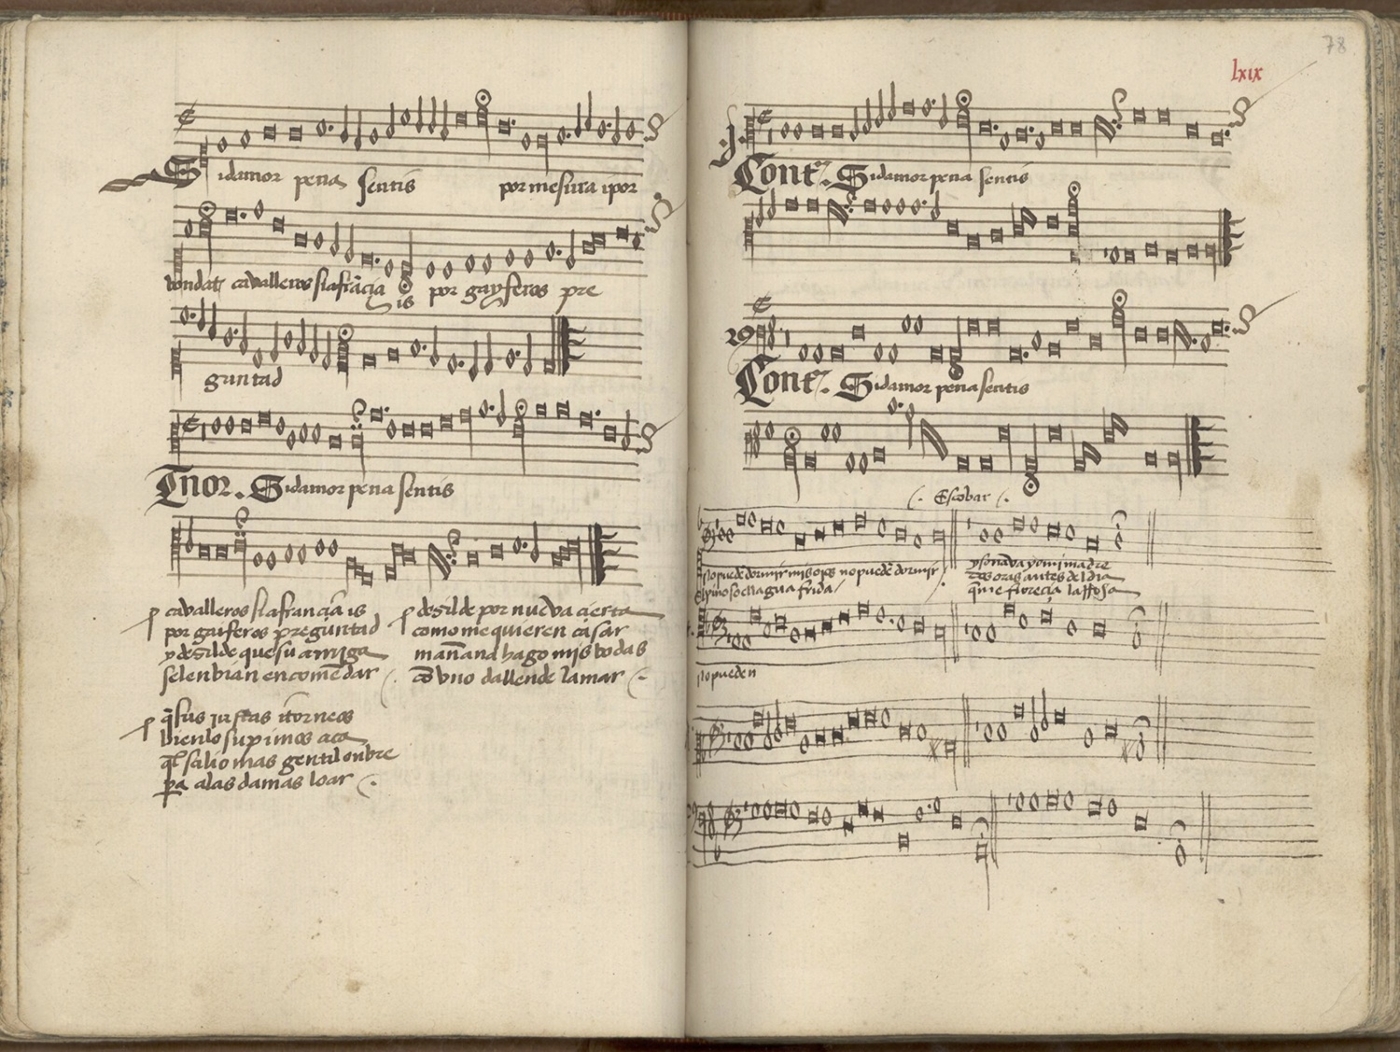 Sidamor pena sentis por mesura ipor
bondat cavalleros siafrãcia is por gayferos pre
guntad
Tnor. Sidamor pena sentis
cavalleros siafrancia is
por gaiferos preguntad
ydezilde quesu amiga
selenbian encomẽdar
dezilde por nueva cierta
como me quieren casar
mañana hago mis bodas
cõ vno dallende la mar
q̃ sus justas itorneos
bien lo supimos aca
salio mas gentil onbre
pa alas damas loar
78
lxix
Cont. Sidamor pena sentis
Cont. Sidamor pena sentis
Escobar
No puedẽ dormir mis ojos no puedẽ dormir
ysonava yo mi madre
dos oras antes del dia
que florecia la Rosa
el pino so ell agua frida
No pueden